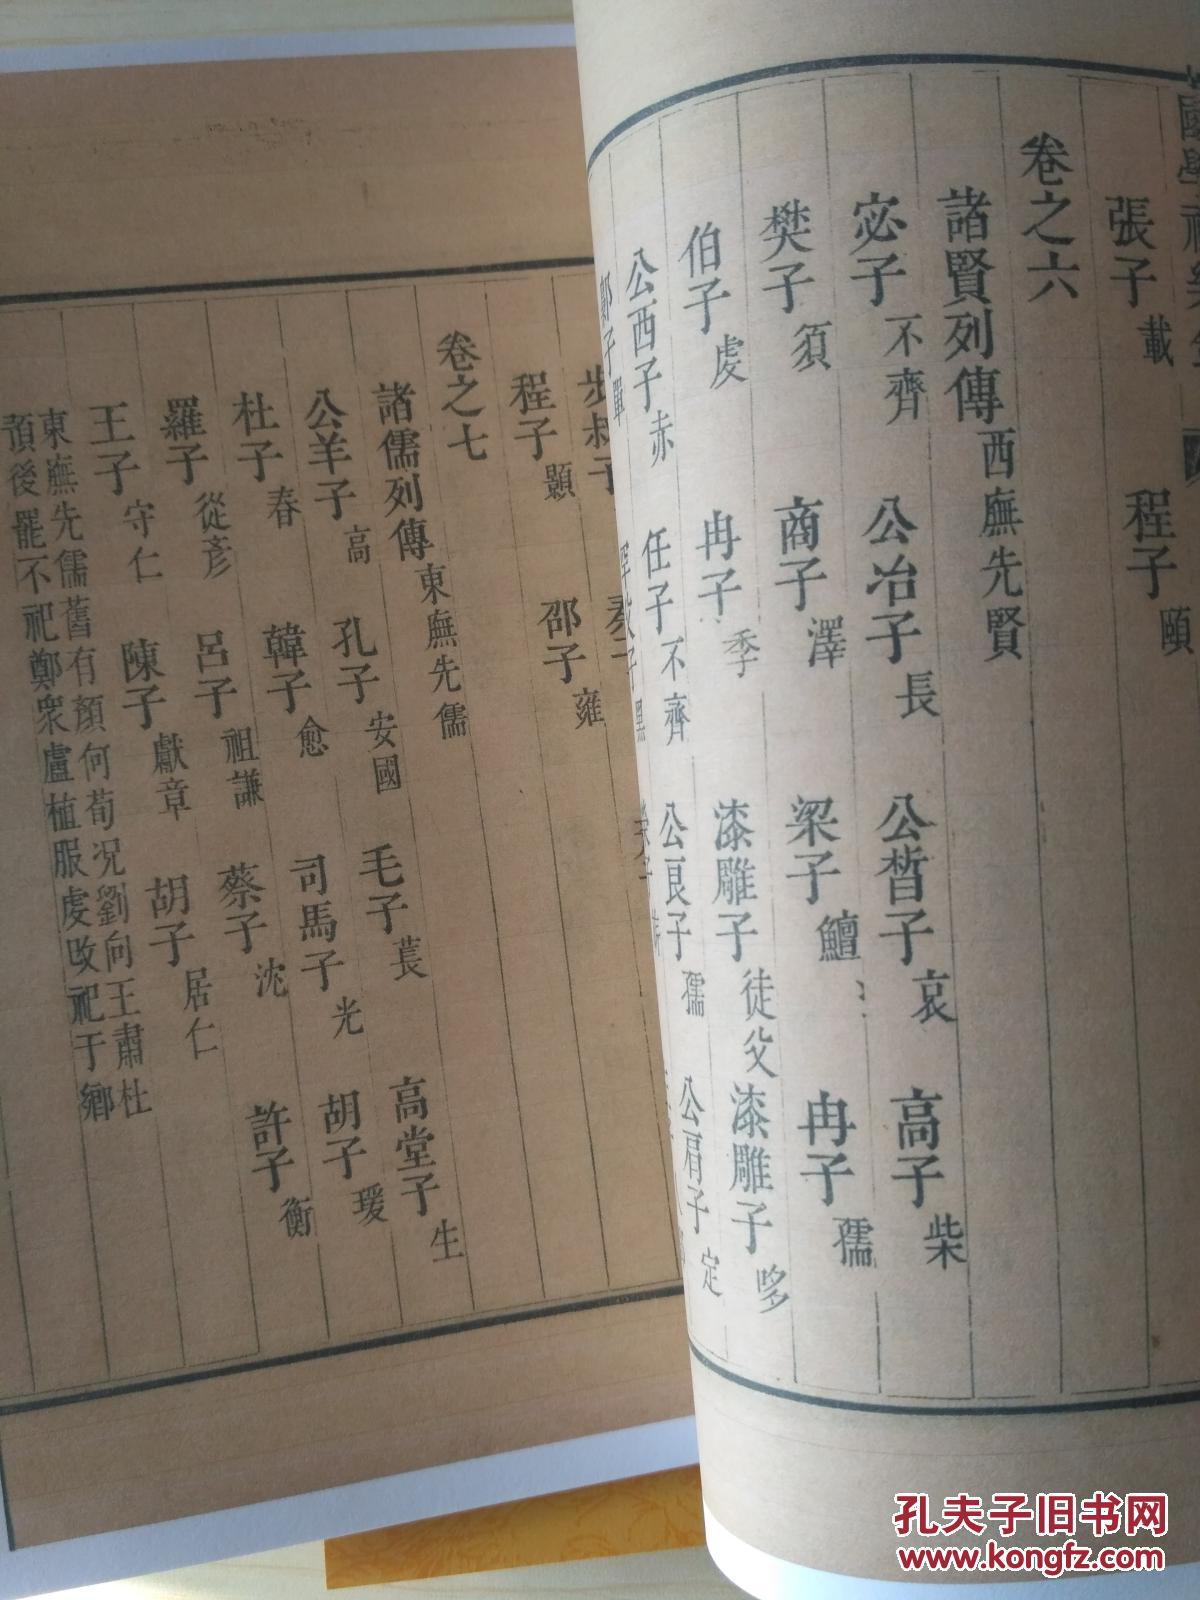 張子載 程子頤
卷之六
諸賢列傳西廡先賢
宓子不齊 公冶子長 公晳子哀 高子柴
樊子須 商子澤 梁子鱣 冉子孺
伯子虔 冉子季 漆雕子徒父 漆雕子哆
公西子赤 任子不齊 公良子孺 公肩子定
鄡子單
步叔子
程子顥 邵子雍
卷之七
諸儒列傳東廡先儒
公羊子高 孔子安國 毛子萇 高堂子生
杜子春 韓子愈 司馬子光 胡子瑗
羅子從彥 呂子祖謙 蔡子沈 許子衡
王子守仁 陳子獻章 胡子居仁
東廡先儒舊有顏何荀况劉向王肅杜
預後罷不祀鄭衆盧植服虔改祀于鄉
孔夫子旧书网
www.kongfz.com